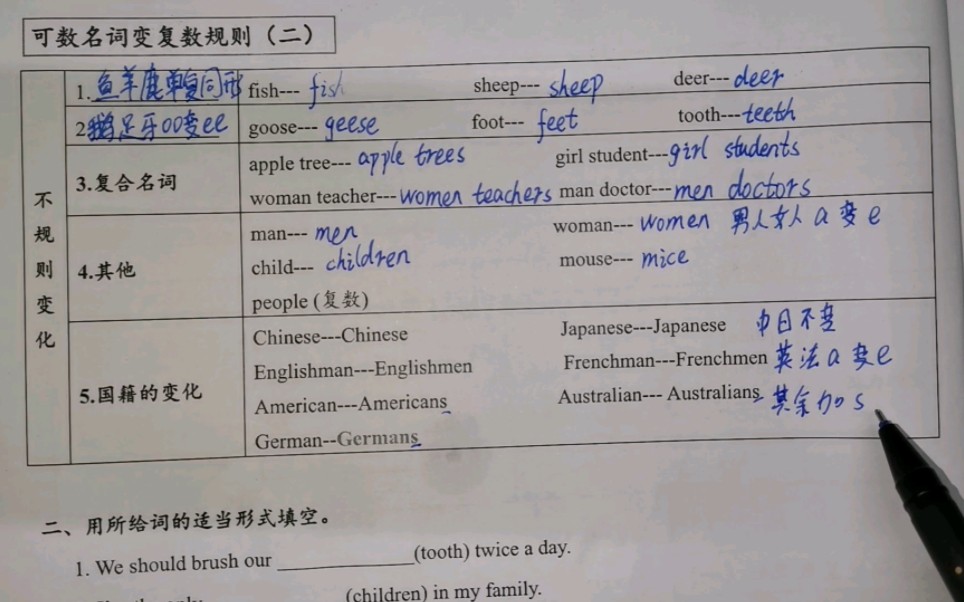 可数名词变复数规则（二）
不规则变化
1.鱼羊鹿单复同形 fish---fish sheep---sheep deer---deer
2鹅足牙oo变ee goose---geese foot---feet tooth---teeth
3.复合名词
apple tree---apple trees girl student---girl students
woman teacher---women teachers man doctor---men doctors
4.其他
man---men woman---women 男人女人a变e
child---children mouse---mice
people (复数)
5.国籍的变化
Chinese---Chinese Japanese---Japanese 中日不变
Englishman---Englishmen Frenchman---Frenchmen 英法a变e
American---Americans Australian---Australians 其余加s
German--Germans
二、用所给词的适当形式填空。
1. We should brush our ____________(tooth) twice a day.
only ____________(children) in my family.